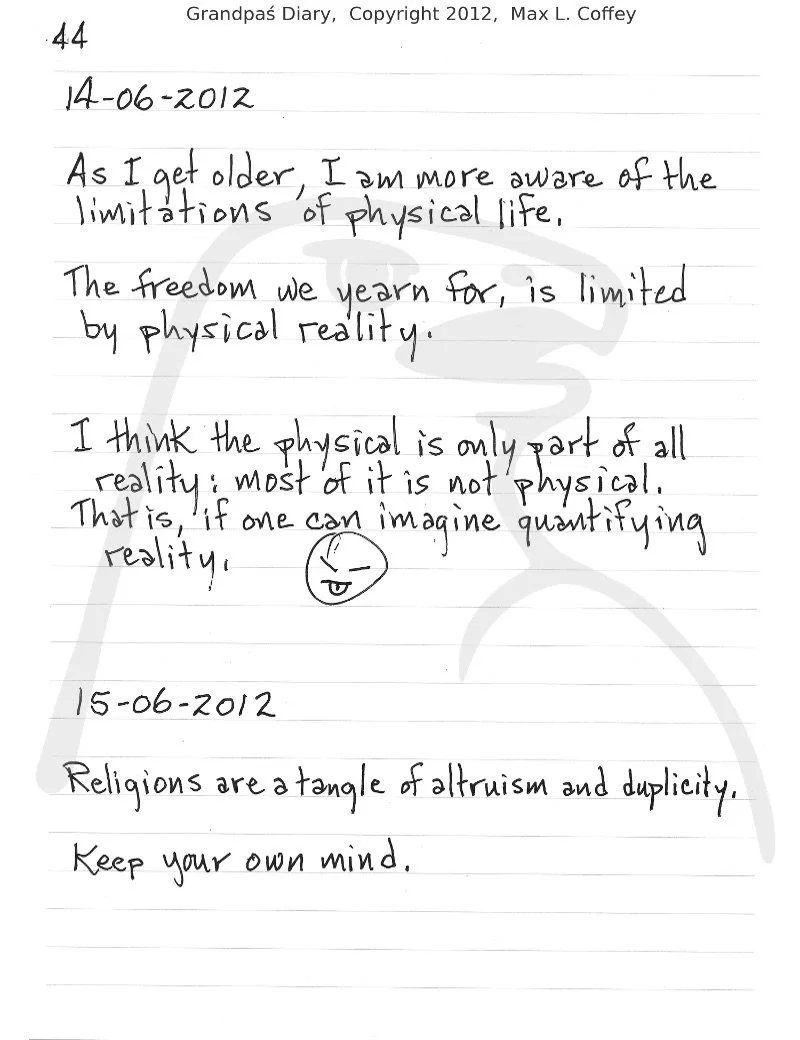 Grandpaś Diary, Copyright 2012, Max L. Coffey
44
14-06-2012
As I get older, I am more aware of the
limitations of physical life.
The freedom we yearn for, is limited
by physical reality.
I think the physical is only part of all
reality; most of it is not physical.
That is, if one can imagine quantifying
reality.
15-06-2012
Religions are a tangle of altruism and duplicity.
Keep your own mind.